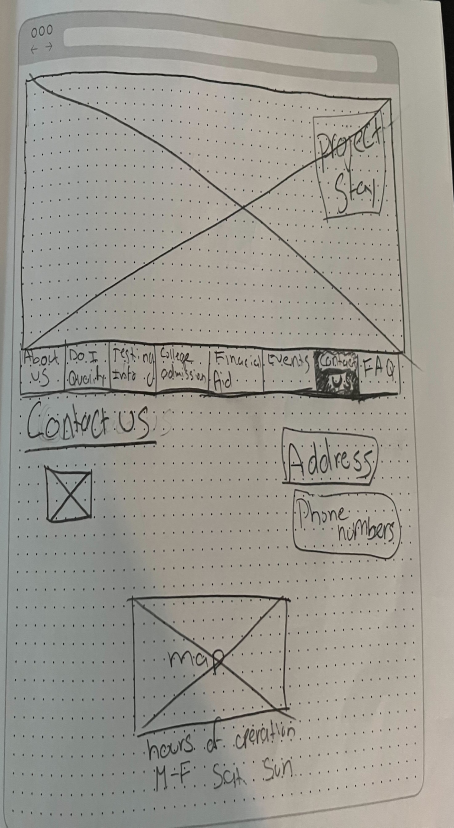 Project
Stay
About
us
Do I
Qualify
Testing
Info
College
admission
Financial
Aid
Events
Contact
us
FAQ
Contact us
Address
Phone
numbers
map
hours of operation
M-F Sat Sun